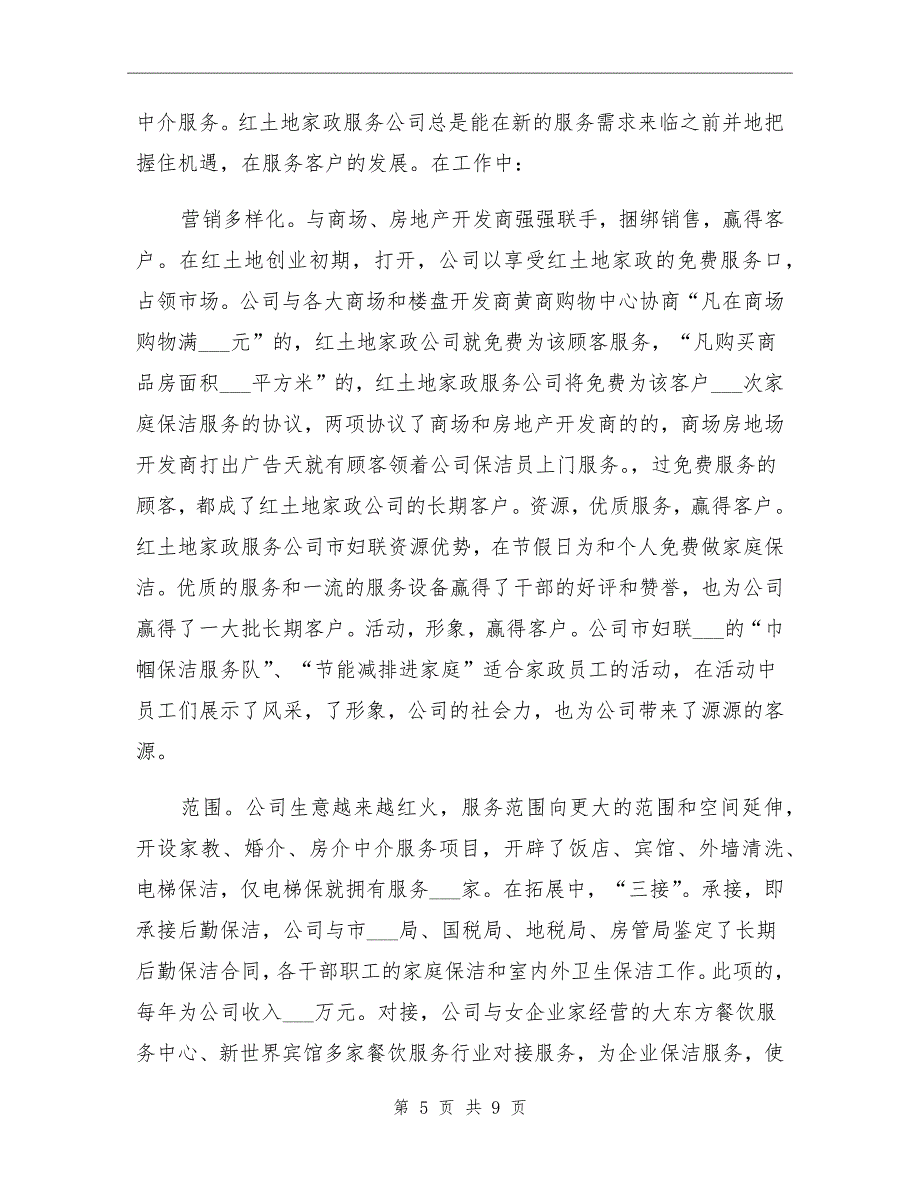 中介服务。红土地家政服务公司总是能在新的服务需求来临之前并地把
握住机遇，在服务客户的发展。在工作中：
营销多样化。与商场、房地产开发商强强联手，捆绑销售，赢得客
户。在红土地创业初期，打开，公司以享受红土地家政的免费服务口，
占领市场。公司与各大商场和楼盘开发商黄商购物中心协商“凡在商场
购物满___元”的，红土地家政公司就免费为该顾客服务，“凡购买商
品房面积___平方米”的，红土地家政服务公司将免费为该客户___次家
庭保洁服务的协议，两项协议了商场和房地产开发商的的，商场房地场
开发商打出广告天就有顾客领着公司保洁员上门服务。，过免费服务的
顾客，都成了红土地家政公司的长期客户。资源，优质服务，赢得客户。
红土地家政服务公司市妇联资源优势，在节假日为和个人免费做家庭保
洁。优质的服务和一流的服务设备赢得了干部的好评和赞誉，也为公司
赢得了一大批长期客户。活动，形象，赢得客户。公司市妇联___的“巾
帼保洁服务队”、“节能减排进家庭”适合家政员工的活动，在活动中
员工们展示了风采，了形象，公司的社会力，也为公司带来了源源的客
源。
范围。公司生意越来越红火，服务范围向更大的范围和空间延伸，
开设家教、婚介、房介中介服务项目，开辟了饭店、宾馆、外墙清洗、
电梯保洁，仅电梯保就拥有服务___家。在拓展中，“三接”。承接，即
承接后勤保洁，公司与市___局、国税局、地税局、房管局鉴定了长期
后勤保洁合同，各干部职工的家庭保洁和室内外卫生保洁工作。此项的，
每年为公司收入___万元。对接，公司与女企业家经营的大东方餐饮服
务中心、新世界宾馆多家餐饮服务行业对接服务，为企业保洁服务，使
第 5 页 共 9 页